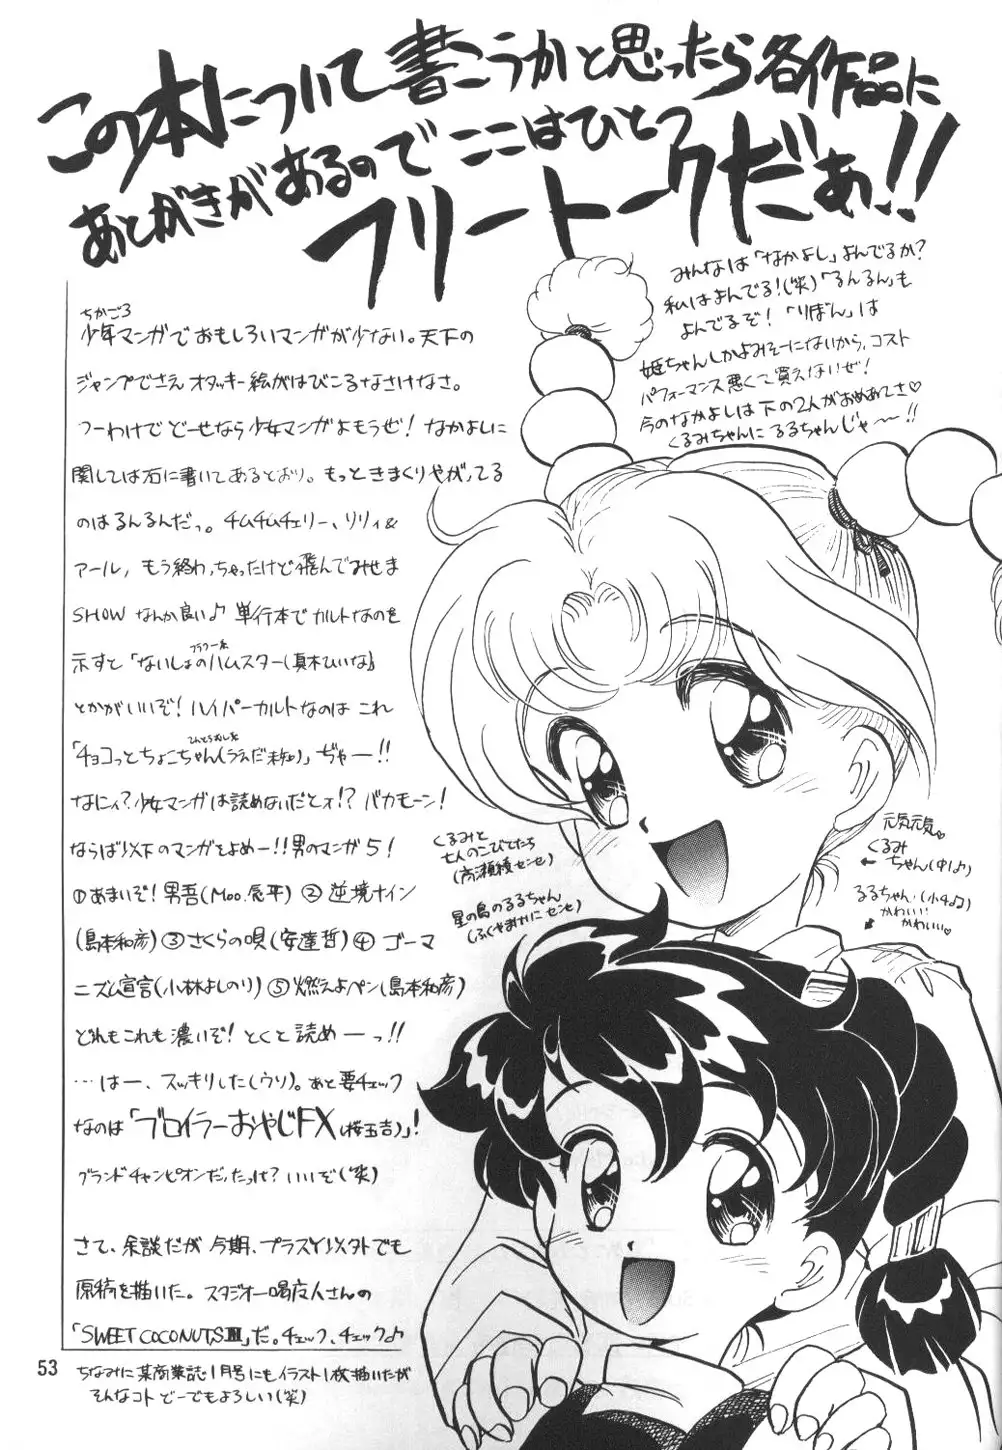 この本について書こうかと思ったら各作品に
あとがきがあるのでここはひとつ
フリートークだぁ!!
みんなは「なかよし」よんでるか?
私はよんでる!(笑)「るんるん」も
よんでるぞ!「りぼん」は
姫ちゃんしかよみそーにないから、コスト
パフォーマンス悪くて買えないぜ!
今のなかよしは下の2人がおめあてさ♡
くるみちゃんにるるちゃんじゃ〜!!
ちかごろ
少年マンガでおもしろいマンガが少ない。天下の
ジャンプでさえオタッキー絵がはびこるなさけなさ。
つーわけでどーせなら少女マンガよもうぜ!なかよしに
関しては右に書いてあるとおり。もっときまくりやがってる
のはるんるんだっ。チムチムチェリー、リリィ&
アール,もう終わっちゃったけど飛んでみせま
SHOWなんか良い♪単行本でカルトなのを
示すと「ないしょのハムスター(真木ひいな)」
とかがいいぞ!ハイパーカルトなのはこれ
「チョコっとちょこちゃん(うえだ未知)」ぢゃー!!
なにィ?少女マンガは読めないだとォ!?バカモーン!
ならば以下のマンガをよめー!!男のマンガ5!
①あまいぞ!男吾(Moo.念平)②逆境ナイン
(島本和彦)③さくらの唄(安達哲)④ゴーマ
ニズム宣言(小林よしのり)⑤燃えよペン(島本和彦)
どれもこれも濃いぞ!とくと読めーっ!!
…はー、スッキリした(ウソ)。あと要チェック
なのは「ブロイラーおやじFX(桜玉吉)」!
グランドチャンピオンだったっけ?いいぞ(笑)
さて、余談だが今期、プラスY以外でも
原稿を描いた。スタジオ一喝友人さんの
「SWEET COCONUTSⅢ」だ。チェック、チェック♪
ちなみに某商業誌1月号にもイラスト1枚描いたが
そんなコトどーでもよろしい(笑)
くるみと
七人のこびとたち
(高瀬綾センセ)
星の島のるるちゃん
(ふくやまみかこセンセ)
元気元気
くるみ
ちゃん(中1♪)
るるちゃん.(小4♪)
かわいい
かわいい♡
53